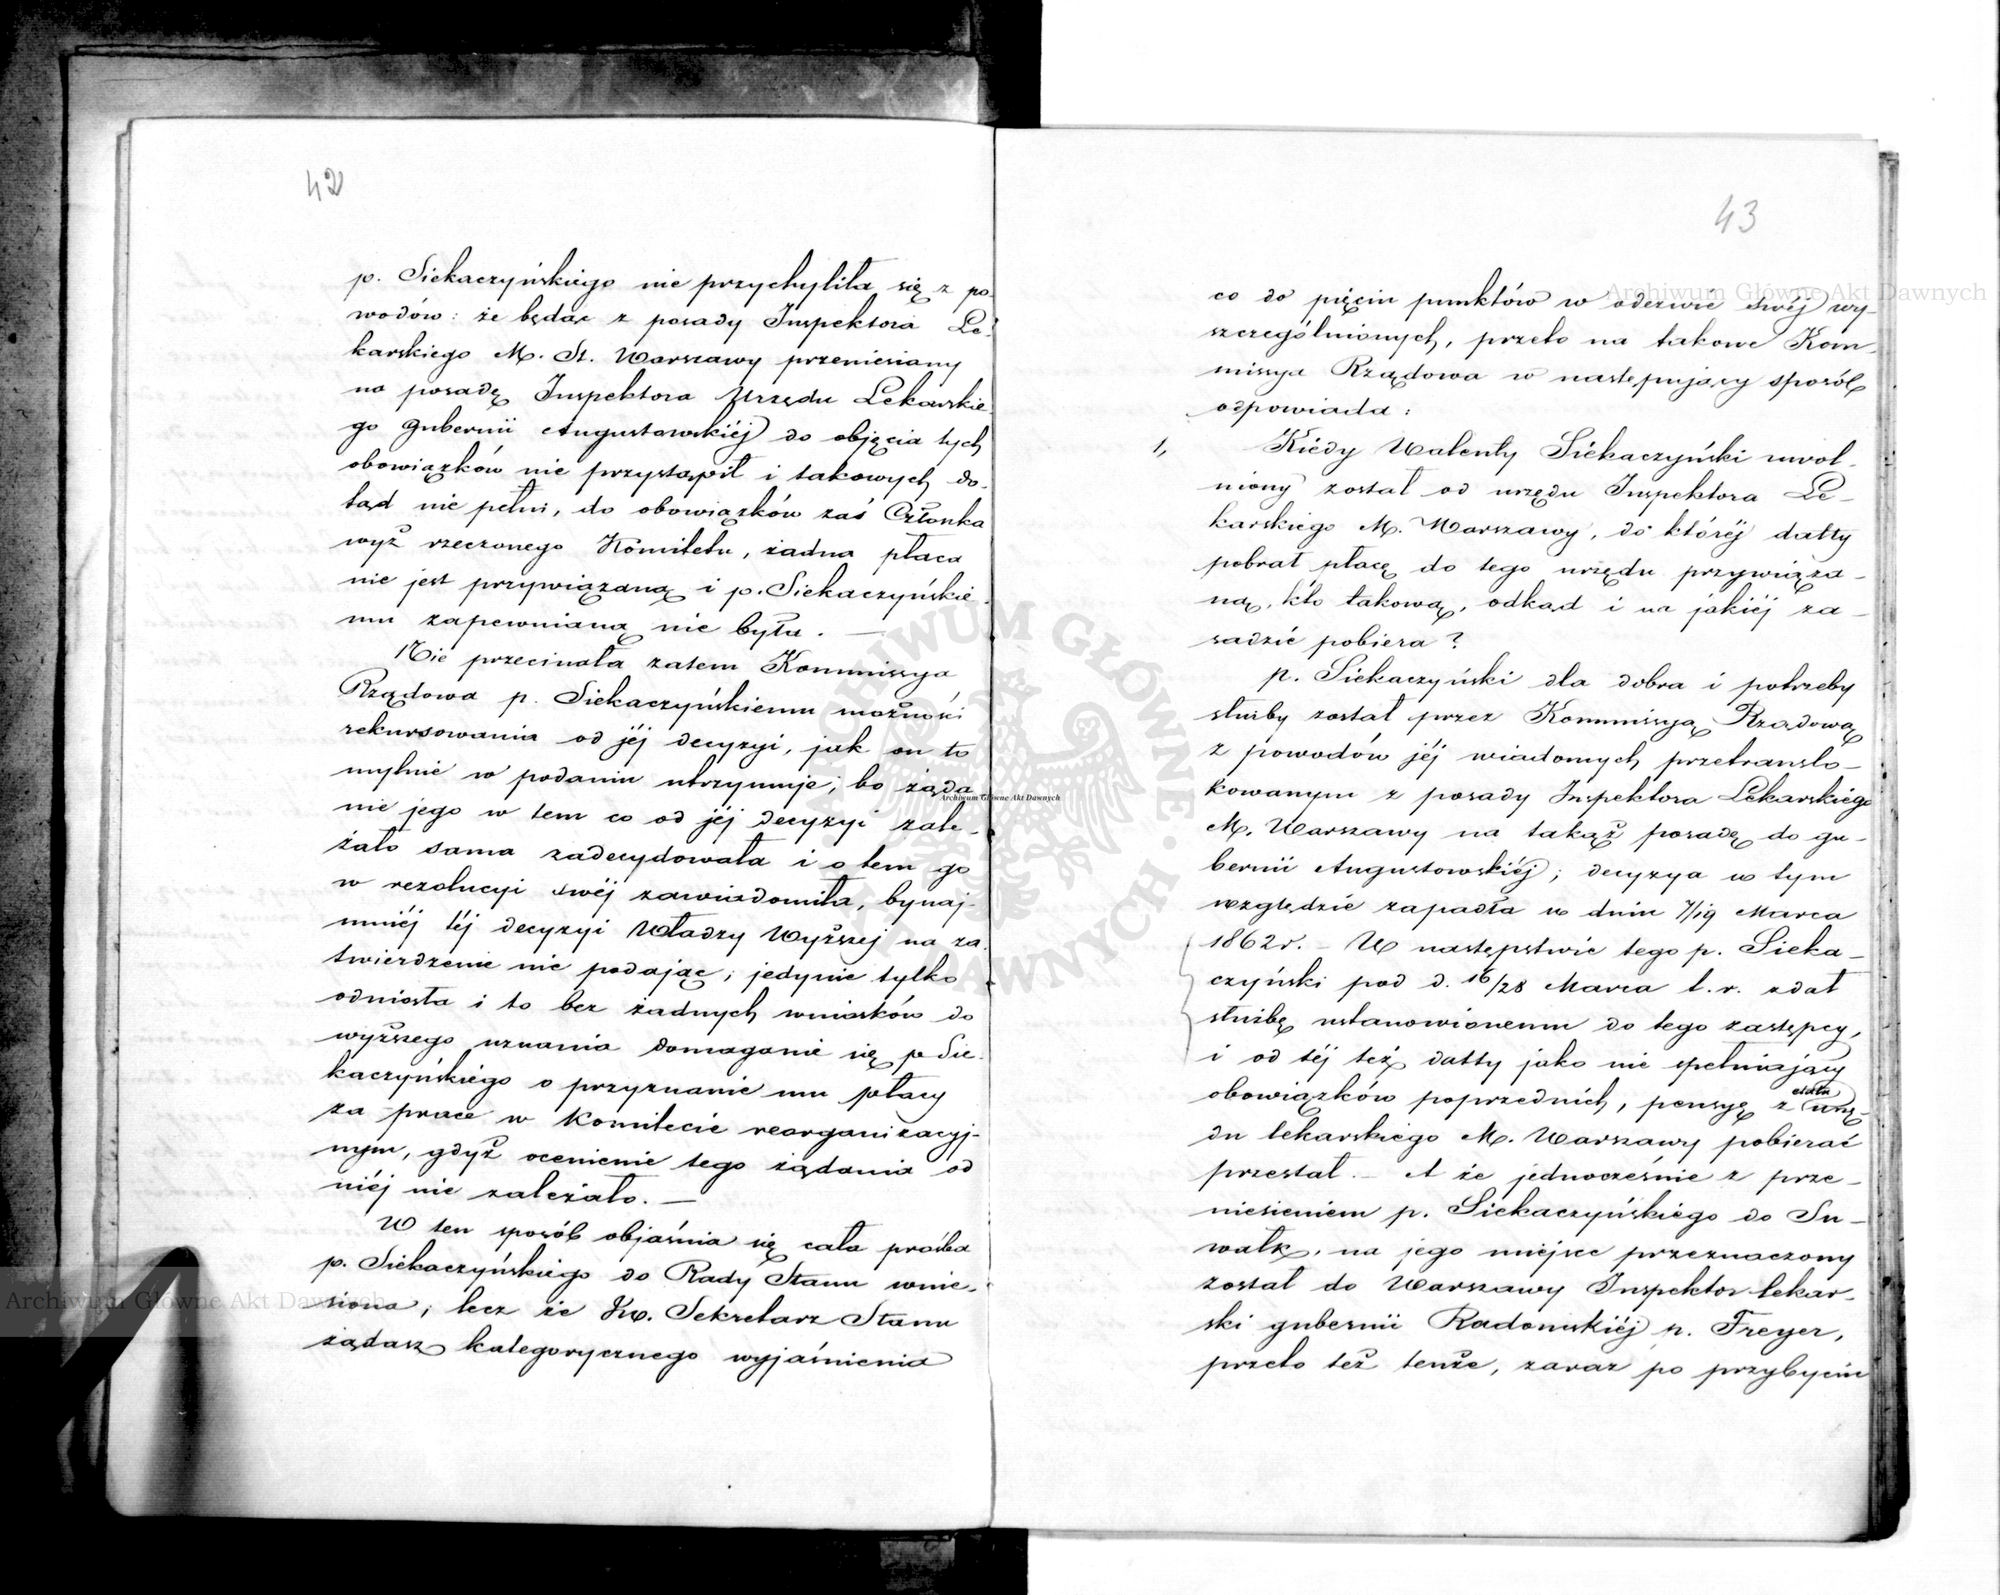 42
p. Siekaczyńskiego nie przychyliła się z po-
wodów: że będąc z posady Inspektora Le-
karskiego M. St. Warszawy przeniesiany
na posadę Inspektora Urzędu Lekarskie-
go gubernii Augustowskiéj do objęcia tych
obowiązków nie przystąpił i takowych do-
tąd nie pełni, do obowiązków zaś Członka
wyż rzeczonego Komitetu, żadna płaca
nie jest przywiązaną i p. Siekaczyńskie-
mu zapewnianą nie była. —
Nie przecinała zatem Kommissya
Rządowa p. Siekaczyńskiemu możności
rekursowania od jéj decyzyi, jak on to
mylnie w podaniu utrzymuje; bo żąda
nie jego w tem co od jéj decyzyi zale-
żało sama zadecydowała i o tem go
w rezolucyi swéj zawiadomiła, bynaj-
mniéj téj decyzyi Władzy Wyższej na za-
twierdzenie nie podając; jedynie tylko
odniosła i to bez żadnych wniosków do
wyższego uznania domaganie się p. Sie-
kaczyńskiego o przyznanie mu płacy
za prace w Komitecie reorganizacyj-
nym, gdyż ocenienie tego żądania od
niéj nie zależało. —
W ten sposób objaśnia się cała prośba
p. Siekaczyńskiego do Rady Stanu wnie-
siona; lecz że Jw. Sekretarz Stanu
żądasz kategorycznego wyjaśnienia
43
co do pięciu punktów w odezwie swéj wy-
szczególnionych, przeto na takowe Kom-
missya Rządowa w następujący sposób
odpowiada:
1, Kiédy Walenty Siékaczyński uwol-
niony został od urzędu Inspektora Le-
karskiego M. Warszawy, do któréj datty
pobrał płacę do tego urzędu przywiąza-
ną, kto takową, odkąd i na jakiéj za-
sadzie pobiera?
p. Siekaczyński dla dobra i potrzeby
służby został przez Kommissyą Rządową
z powodów jéj wiadomych przetranslo-
kowanym z posady Inspektora Lekarskiégo
M. Warszawy na takąż posadę do gu-
bernii Augustowskiéj; decyzya w tym
względzie zapadła w dniu 7/19 Marca
1862 r. – W następstwie tego p. Sieka-
czyński pod d. 16/28 Marca t. r. zdał
służbę ustanowionemu do tego zastępcy,
i od téj też datty jako nie spełniający
obowiązków poprzednich, pensyę z etatu urzę-
du lekarskiego M. Warszawy pobierać
przestał. – A że jednocześnie z prze-
niesieniem p. Siekaczyńskiego do Su-
wałk, na jego miejsce przeznaczony
został do Warszawy Inspektor lekar-
ski gubernii Radomskiéj p. Freyer,
przeto też tenże, zaraz po przybyciu
Archiwum Główne Akt Dawnych
Archiwum Główne Akt Dawnych
Archiwum Główne Akt Dawnych
ARCHIWUM GŁÓWNE AKT DAWNYCH